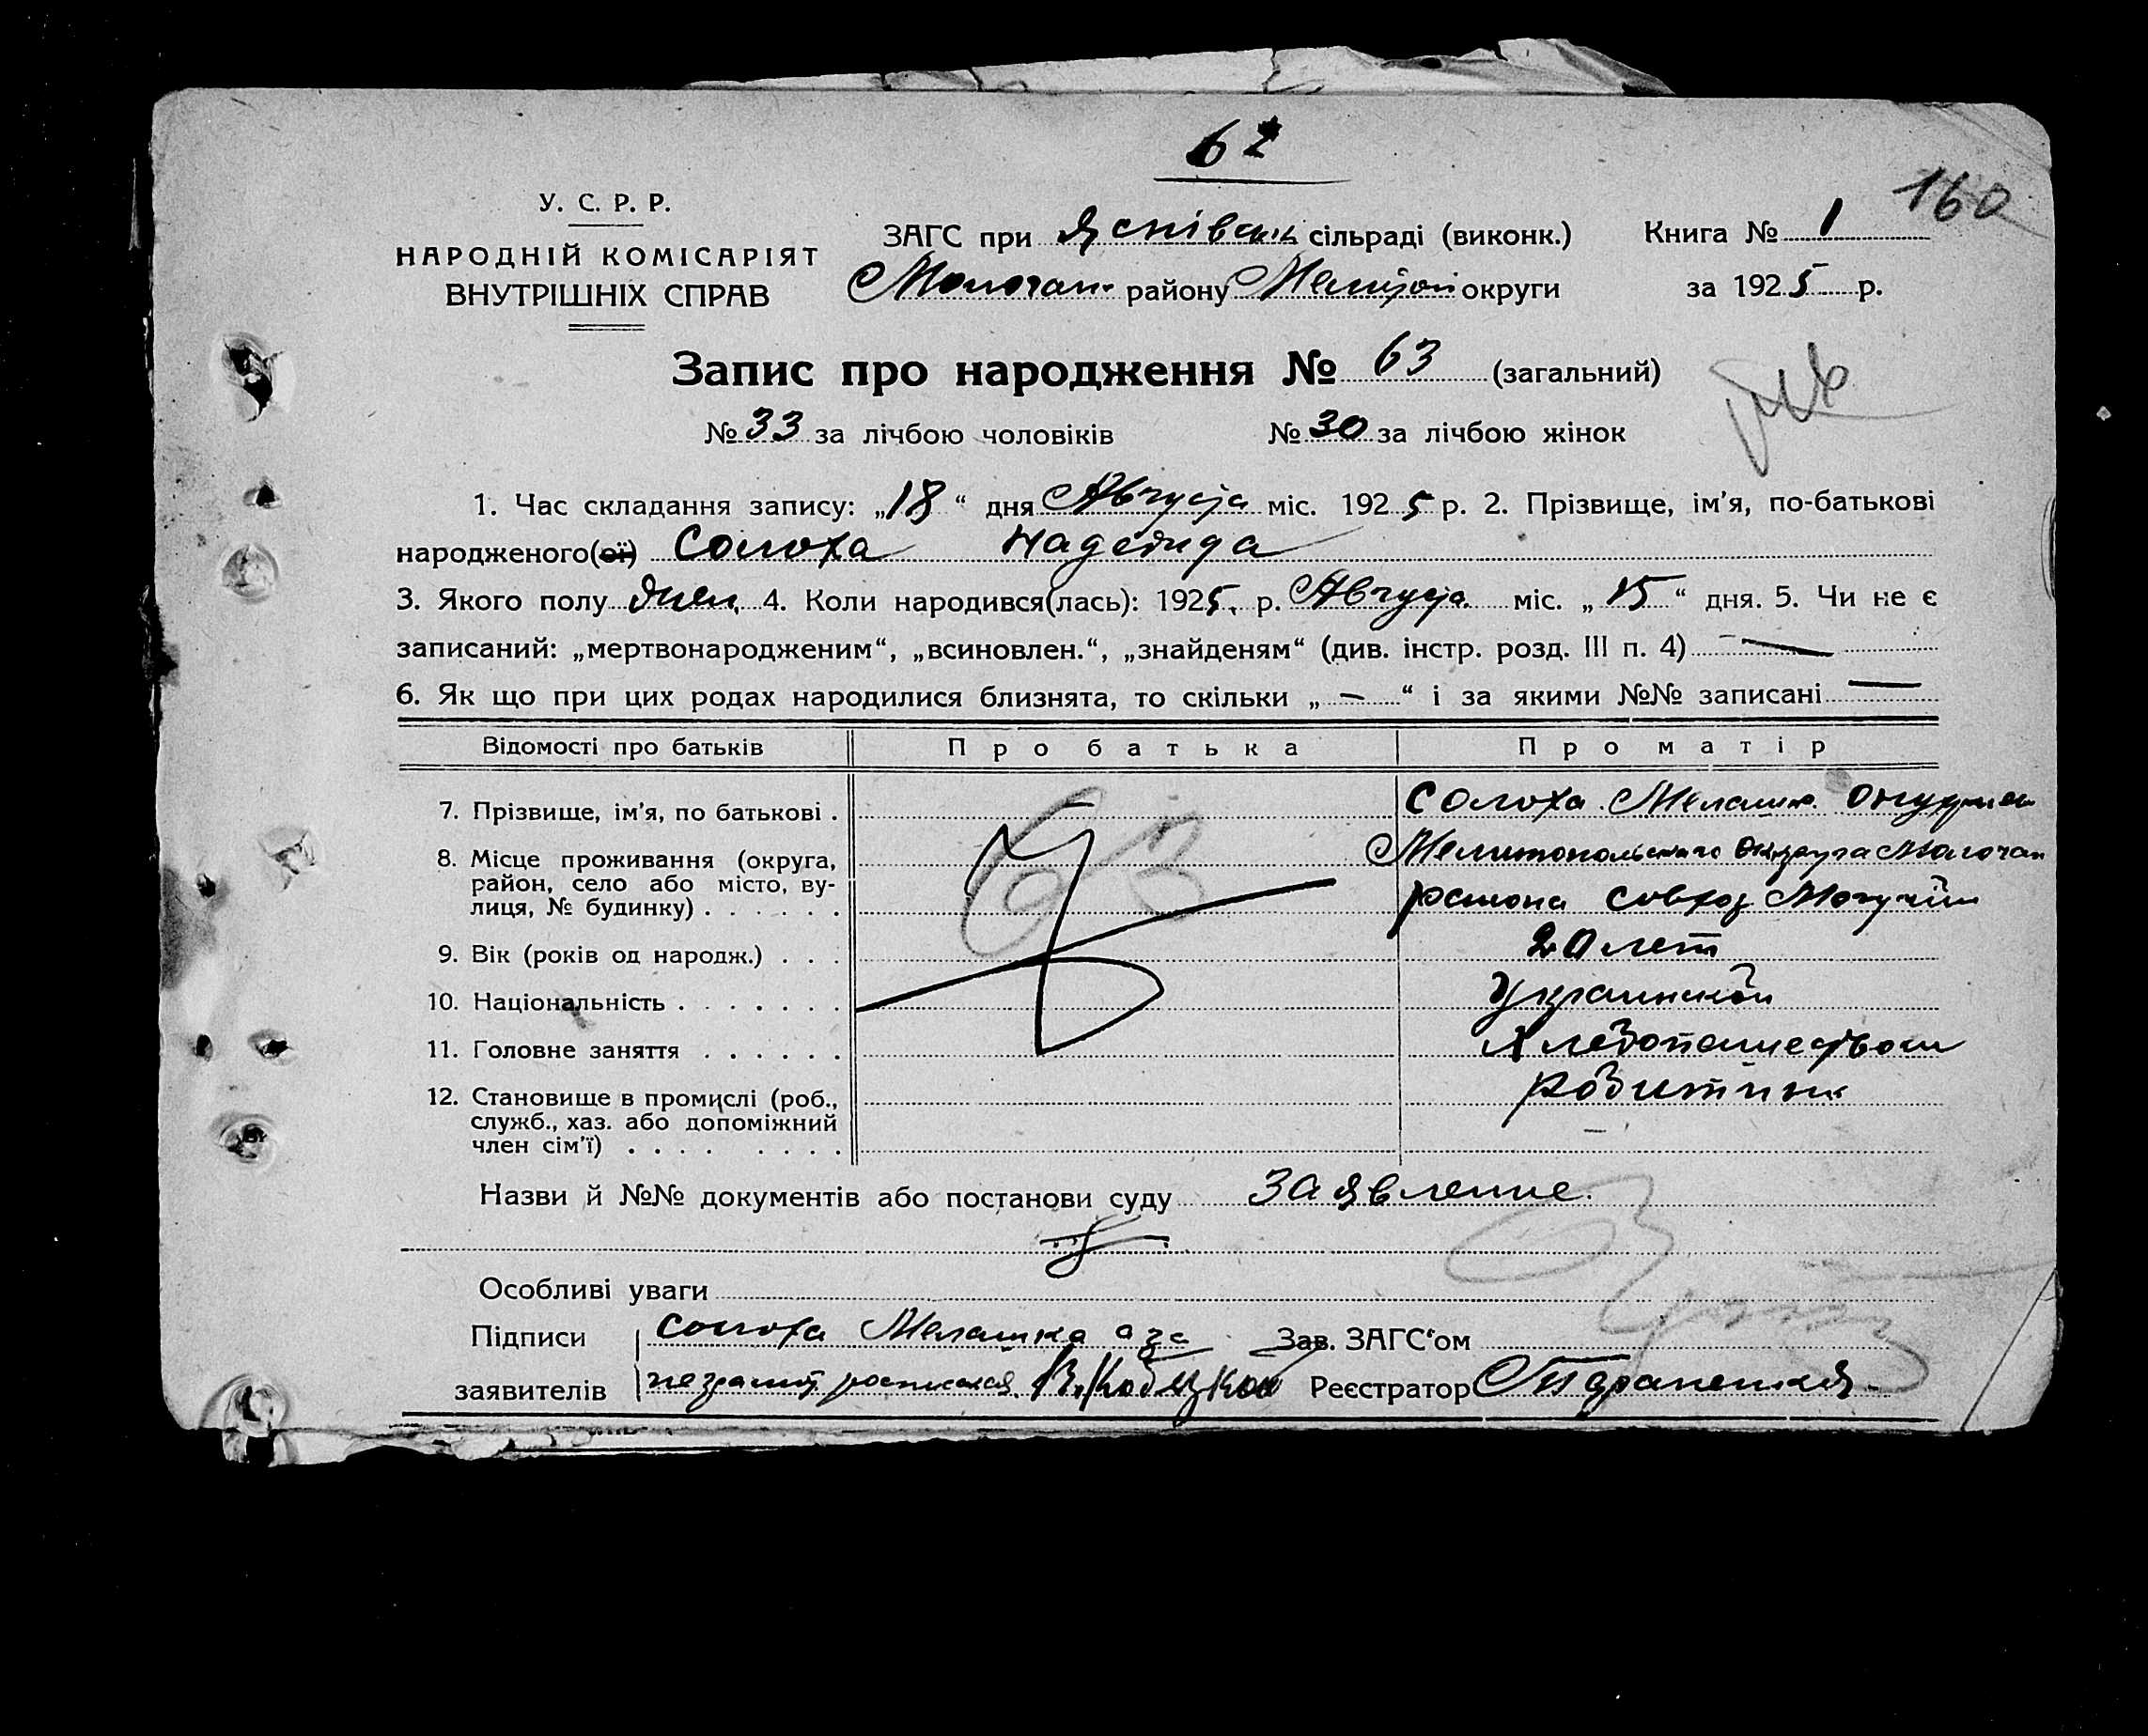 62
160
У. С. Р. Р.
НАРОДНІЙ КОМІСАРІЯТ
ВНУТРІШНІХ СПРАВ
ЗАГС при сільраді (виконк.) Книга № 1
Молочан. району округи за 1925 р.
Запис про народження № 63 (загальний)
№ 33 за лічбою чоловіків № 30 за лічбою жінок
1. Час складання запису: „18“ дня Августа міс. 1925 р. 2. Прізвище, ім'я, по-батькові
народженого(ої) Солоха Надежда
3. Якого полу жен. 4. Коли народився(лась): 1925 р. Августа міс. „15“ дня. 5. Чи не є
записаний: „мертвонародженим“, „всиновлен.“, „знайденям“ (див. інстр. розд. III п. 4) —
6. Як що при цих родах народилися близнята, то скільки „—“ і за якими №№ записані —
Відомості про батьків Про батька Про матір
63
7. Прізвище, ім'я, по батькові . Солоха Мелашк.
8. Місце проживання (округа, Мелитопольского Округа Молочан
район, село або місто, ву- района совхоз Могучий
лиця, № будинку) . . . . . .
9. Вік (років од народж.) . . . 20 лет
10. Національність . . . . . . . Украинской
11. Головне заняття . . . . . . Хлебопашеством
12. Становище в промислі (роб.,
служб., хаз. або допоміжний
член сім'ї) . . . . . . . .
Назви й №№ документів або постанови суду Заявление.
Особливі уваги
Підписи Солоха Мелашка а за Зав. ЗАГС'ом
заявителів неграмот. Реєстратор